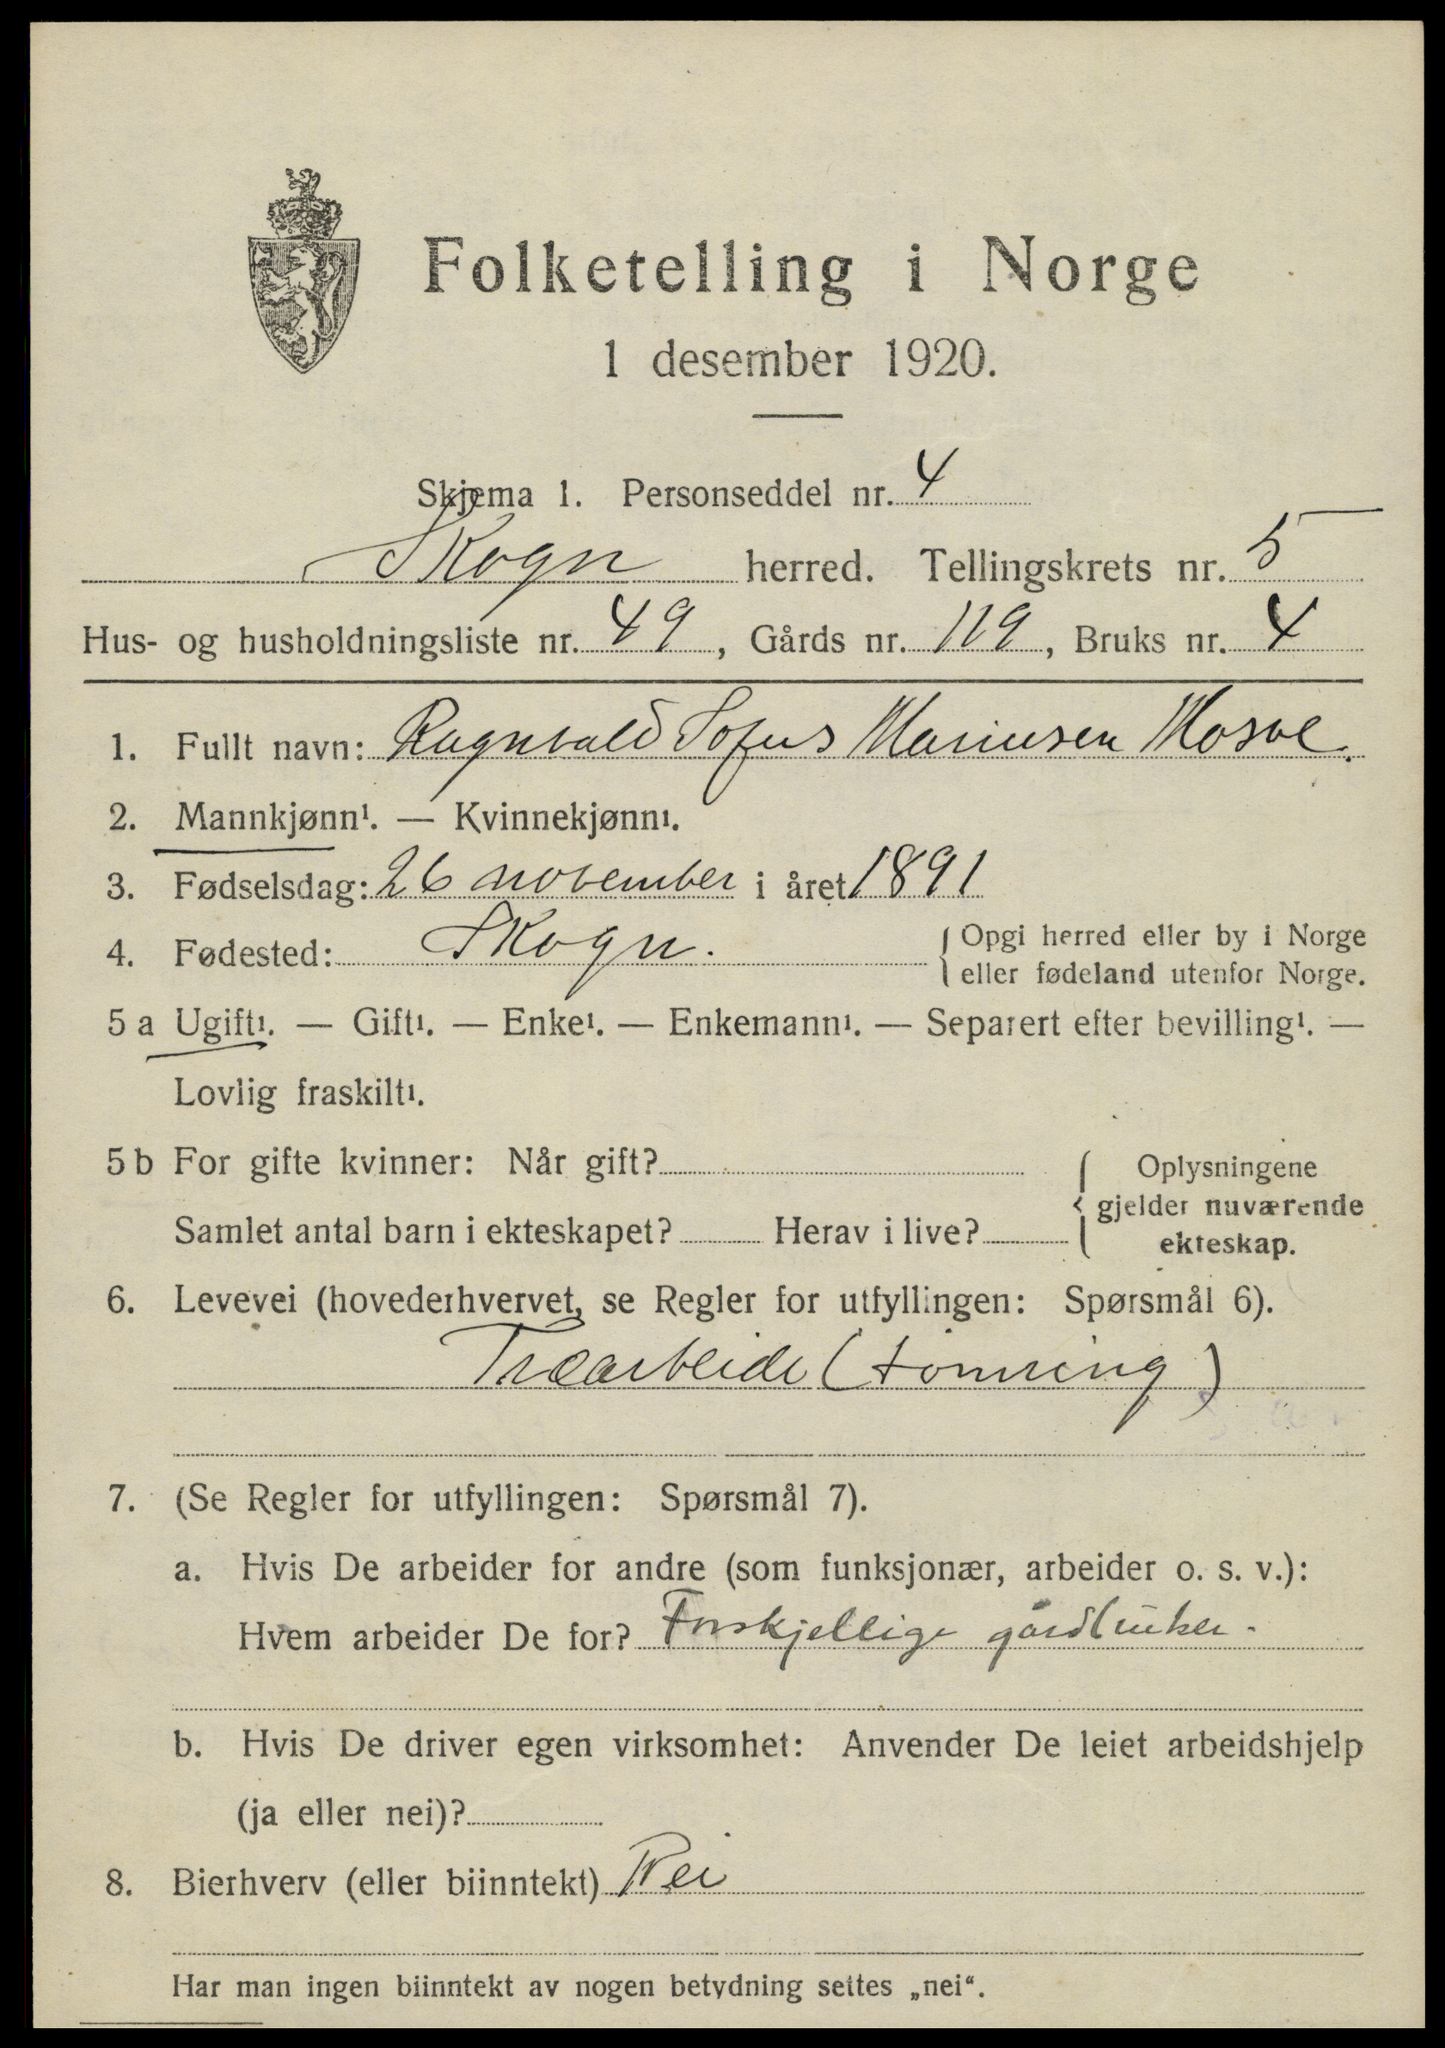 Folketelling i Norge
1 desember 1920.
Skjema 1. Personseddel nr. 4
Skogn herred. Tellingskrets nr. 5
Hus- og husholdningsliste nr. 49, Gårds nr. 119, Bruks nr. 4
1. Fullt navn: Ragnvald Sofus Mariusen Mosve.
2. Mannkjønn¹. — Kvinnekjønn¹.
3. Fødselsdag: 26 november i året 1891
4. Fødested: Skogn. { Opgi herred eller by i Norge
eller fødeland utenfor Norge.
5 a Ugift¹. — Gift¹. — Enke¹. — Enkemann¹. — Separert efter bevilling¹. —
Lovlig fraskilt¹.
5 b For gifte kvinner: Når gift? { Oplysningene
gjelder nuværende
Samlet antal barn i ekteskapet? Herav i live?
ekteskap.
6. Levevei (hovederhvervet, se Regler for utfyllingen: Spørsmål 6).
Træarbeide (tømring)
7. (Se Regler for utfyllingen: Spørsmål 7).
a. Hvis De arbeider for andre (som funksjonær, arbeider o. s. v.):
Hvem arbeider De for? Forskjellige gårdbruker.
b. Hvis De driver egen virksomhet: Anvender De leiet arbeidshjelp
(ja eller nei)?
8. Bierhverv (eller biinntekt) Nei
Har man ingen biinntekt av nogen betydning settes „nei“.